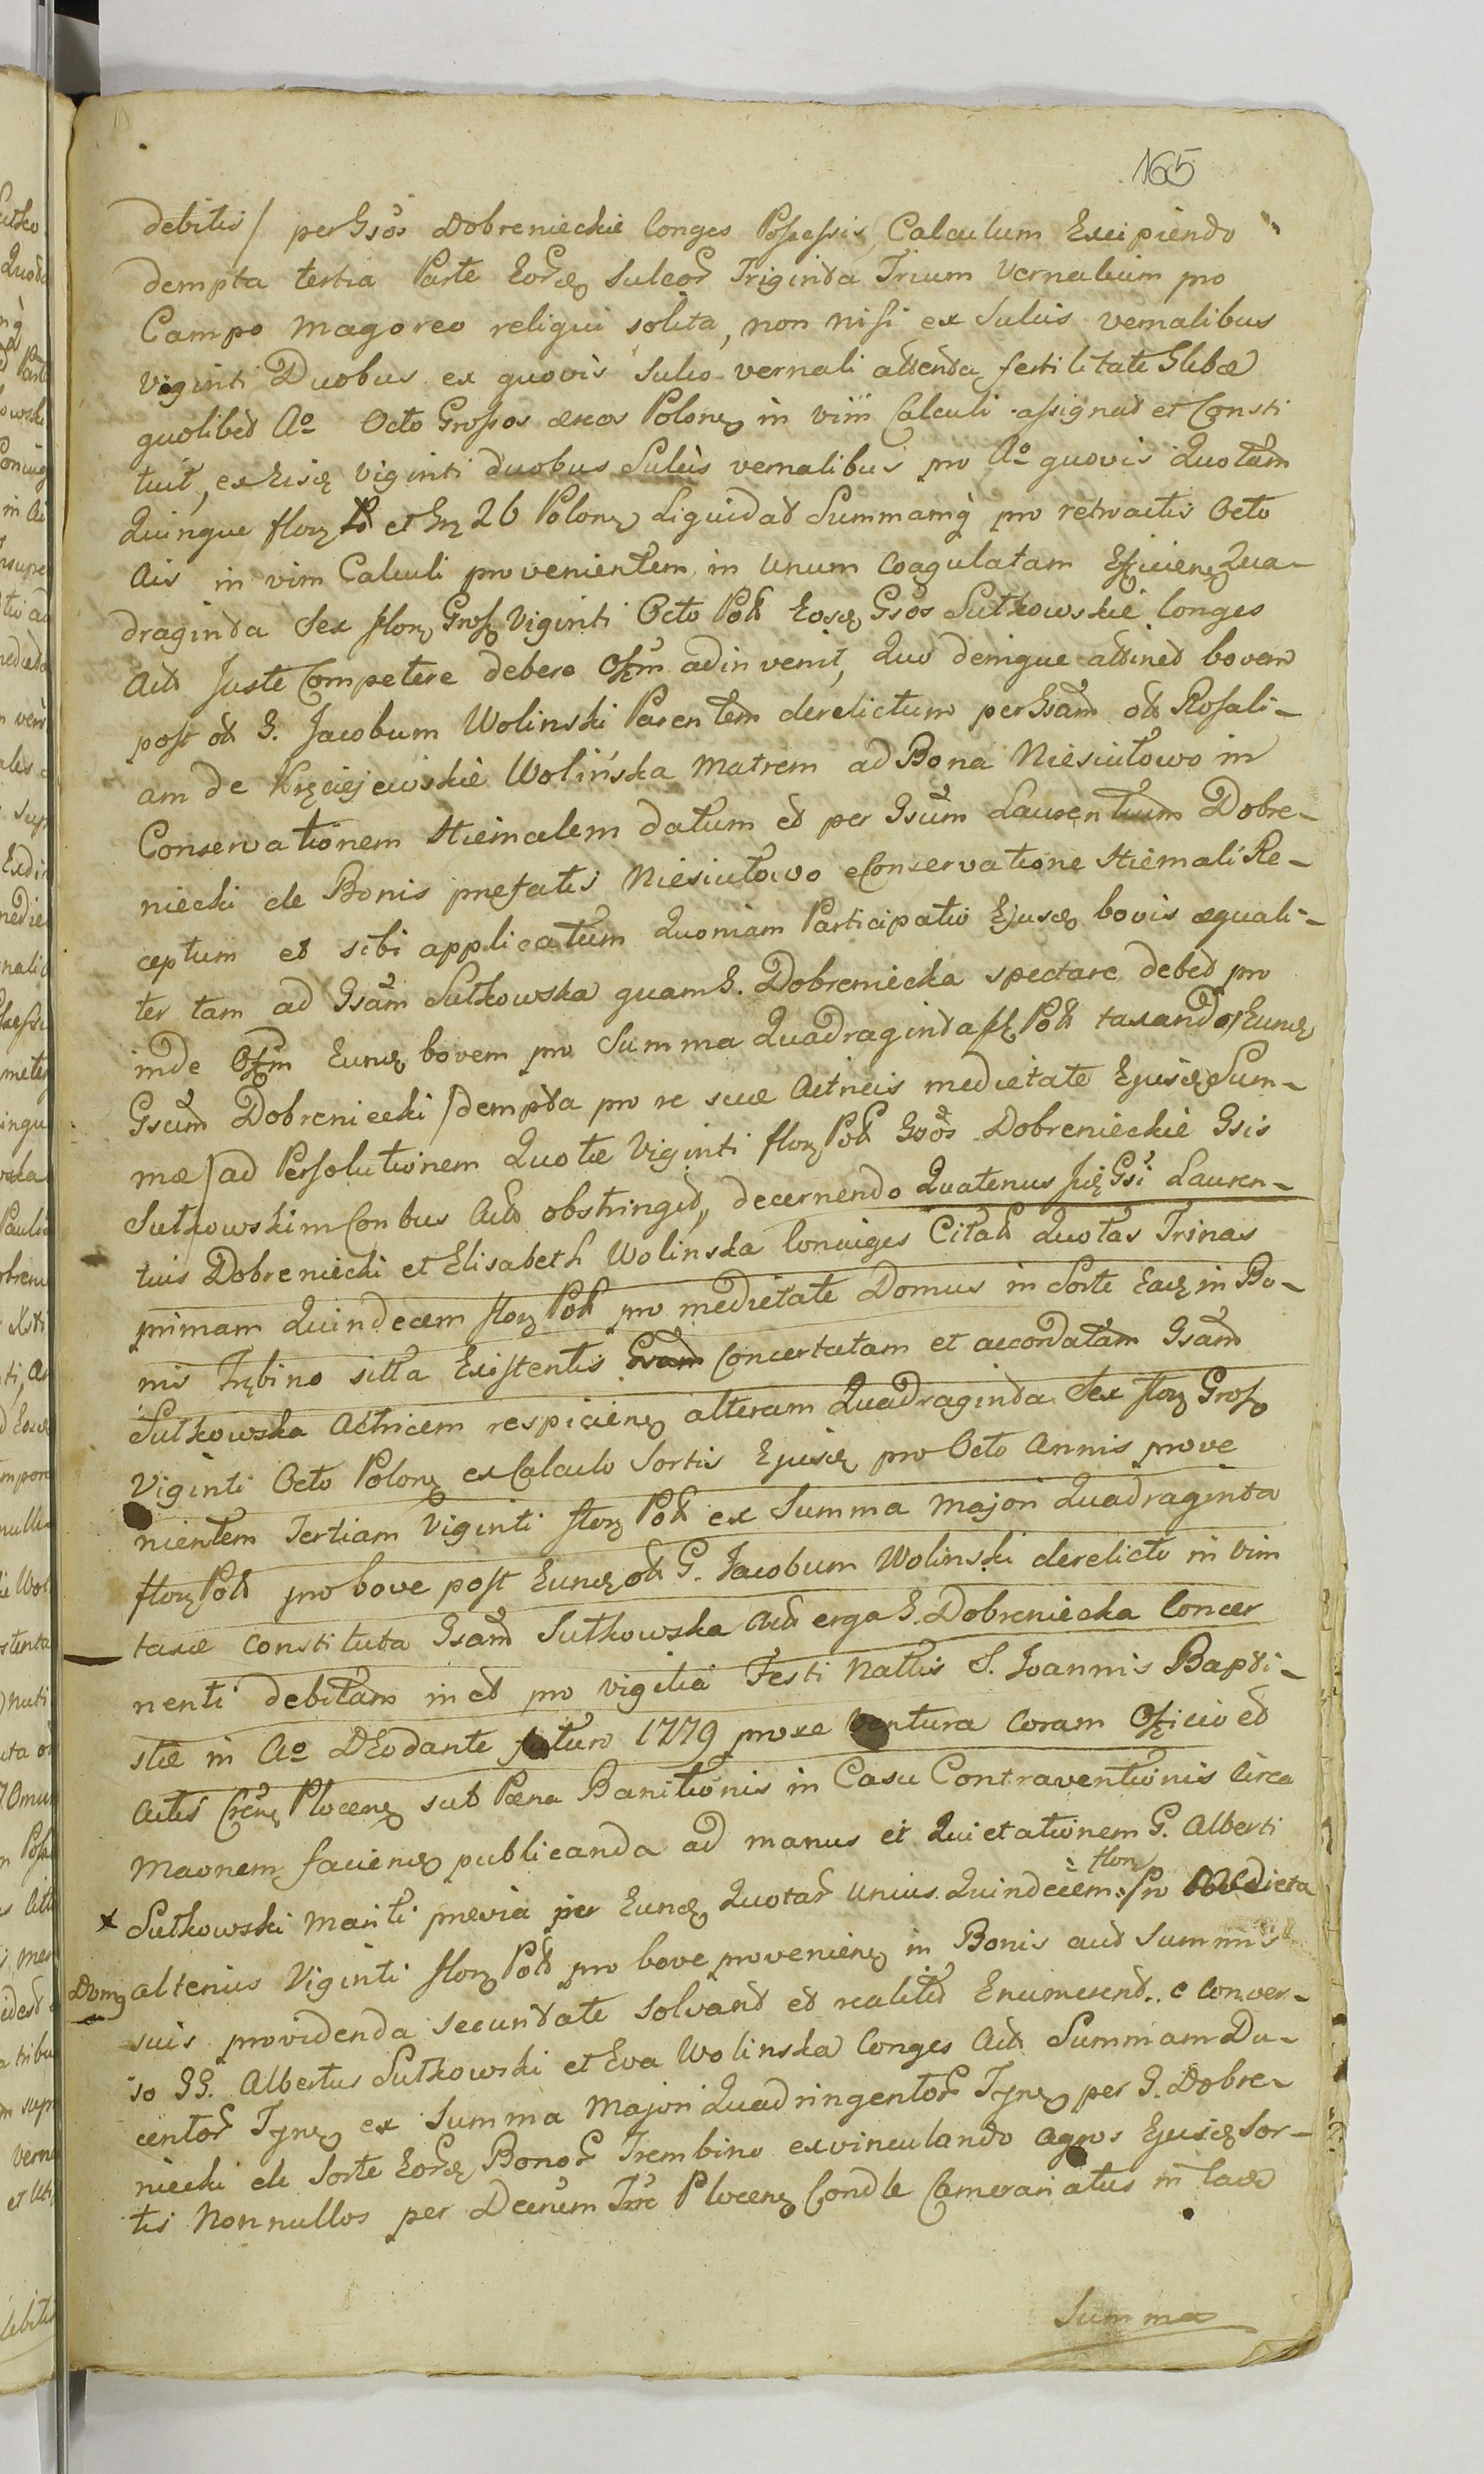 165
debitis / per Gsos Dobrenieckie Conges Possessis, Calculum Excipiendo
dempta tertia Parte Eorde Sulcor Triginta Trium vernalium pro
Campo Magoreo religui solita, non nisi ex Sulcis vernalibus
viginti Duobus ex quovis Sulco vernali attenta fertilitate Glebæ
quolibet Ao Octo Grossos æreos Polon in vim Calculi assignat et Consti
tuit, ex Eisde viginti duobus Sulcis vernalibus pro Ao quovis Quotam
Quinque flor et Gr 26 Polon Liquidat Summamq pro retroactis Octo
Ais in vim Calculi provenientem in unum Coagulatam Efficien Qua-
draginta Sex flor Gros Viginti Octo Pol Eosde Gsos Sutkowskie Conges
Act Juste Competere debere Offm adinvenit, Quo denique attinet bovem
post ol G. Jacobum Wolinski Parentem derelictum per Gsam ol Rosali-
am de Kręciejewskie Wolińska Matrem ad Bona Niesiułowo in
Conservationem Hiemalem datum et per Gsum Laurentium Dobre-
niecki de Bonis prefatis Niesiułowo e Conservatione Hiemali Re-
ceptum et sibi applicatum Quoniam Participatio Ejusde bovis æquali-
ter tam ad Gsam Sutkowska quam G. Dobreniecka spectare debet pro
inde Offm Eunde bovem pro Summa Quadraginta fl Pol taxando, Eunde
Gsum Dobreniecki / dempta pro re sua Actricis medietate Ejusde Sum-
mæ / ad Persolutionem Quotæ Viginti flor Pol Gsos Dobrenieckie Gsis
Sutkowskim Conbus Act obstringit, decernendo Quatenus Iide Gsi Lauren-
tius Dobreniecki et Elisabeth Wolinska Coniuges Citat Quotas Trinas
primam Quindecem flor Pol pro medietate Domus in Sorte Eade in Bo-
nis Trębino sitta Existentis Concertatam et accordatam Gsam
Sutkowska Actricem respicien alteram Quadraginta Sex flor Gros
Viginti Octo Polon ex Calculo Sortis Ejusde pro Octo Annis prove
nientem Tertiam Viginti flor Pol ex Summa majori Quadraginta
flor Pol pro bove post Eunde ol G. Jacobum Wolinski derelicto in vim
taxæ constituta Gsam Sutkowska Act erga G. Dobreniecka Concer
nenti debitam in et pro vigilia Festi Nattis S. Joannis Bapti-
stæ in Ao DEo dante futuro 1779 proxe ventura Coram Officio et
Actis Plocen sub Pœna Banitionis in Casu Contraventionis Circa
Maonem facien publicanda ad manus et Quietationem G. Alberti
flor
x Sutkowski Mariti previa per Eunde Quotar unius Quindecem Pro Medieta
Domus alterius Viginti flor Pol pro bove provenien in Bonis aut Summis
suis providenda securitate solvant et realiter Enumerent. e Conver-
so GG. Albertus Sutkowski et Eva Wolinska Conges Act Summam Du-
centor Tyn ex Summa Majori Quadringentor Tyn per G. Dobre-
niecki de Sorte Eorde Bonor Trembino exvinculando agros Ejusde Sor-
tis Nonnullos per Decrum Trre Plocen Condle Camerariatus in
Summa